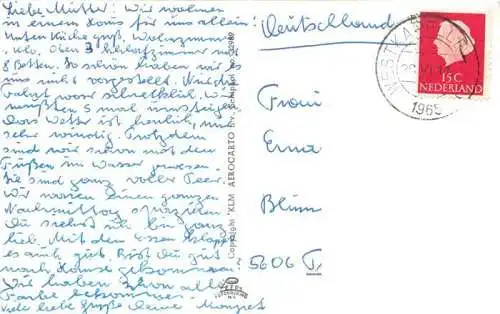 Liebe Mutter! Wir wohnen
in einem Haus für uns allein!
Unten Küche groß, Wohnzimmer,
Klo. Oben 3 Schlafzimmer mit
8 Betten. So schön haben wir es
uns nicht vorgestellt. Nur die
Fahrt war schrecklich. Wir
mußten 5 mal umsteigen.
Das Wetter ist herrlich, nur
sehr windig. Trotzdem
sind wir schon mit den
Füßen im Wasser gewesen.
Sie sind ganz voller Teer.
Wir waren einen ganzen
Nachmittag spazieren.
Du siehst ich bin ganz
lieb. Mit dem Essen klappt
es auch gut. Bist du gut
nach Hause gekommen?
Wir haben schon alle
Farbe bekommen.
Viele liebe Grüße deine
Copyright "KLM AEROCARTO N.V. Schiphol no.
Deutschland
15C
NEDERLAND
1965
Frau
Erna
Blum
5606 T.